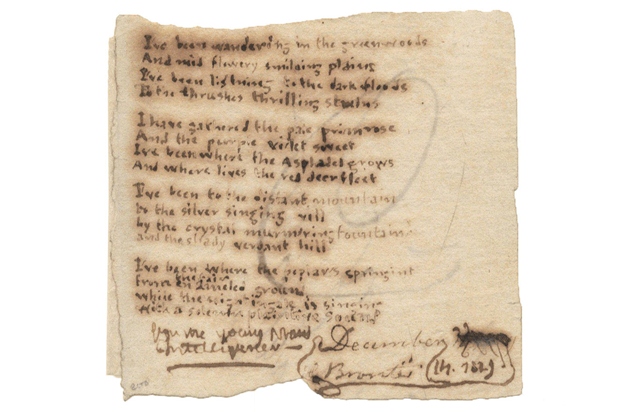 I've been wandering in the greenwoods
And mid flowery smilaing plains
I've been listning to the dark floods
To the thrushes thrilling strains
I have gathered the pale primrose
And the purple violet sweet
I've been where the Asphadel grows
And where lives the red deer fleet
I've been to the distant mountain
to the silver singing rill
by the crystal murmring fountain
and the shady verdant hill
I've been where the poplar is springing
from the fair enameled ground
while the nightingale is singing
With a solemn plaintive sound
December
Bronte
14, 1829